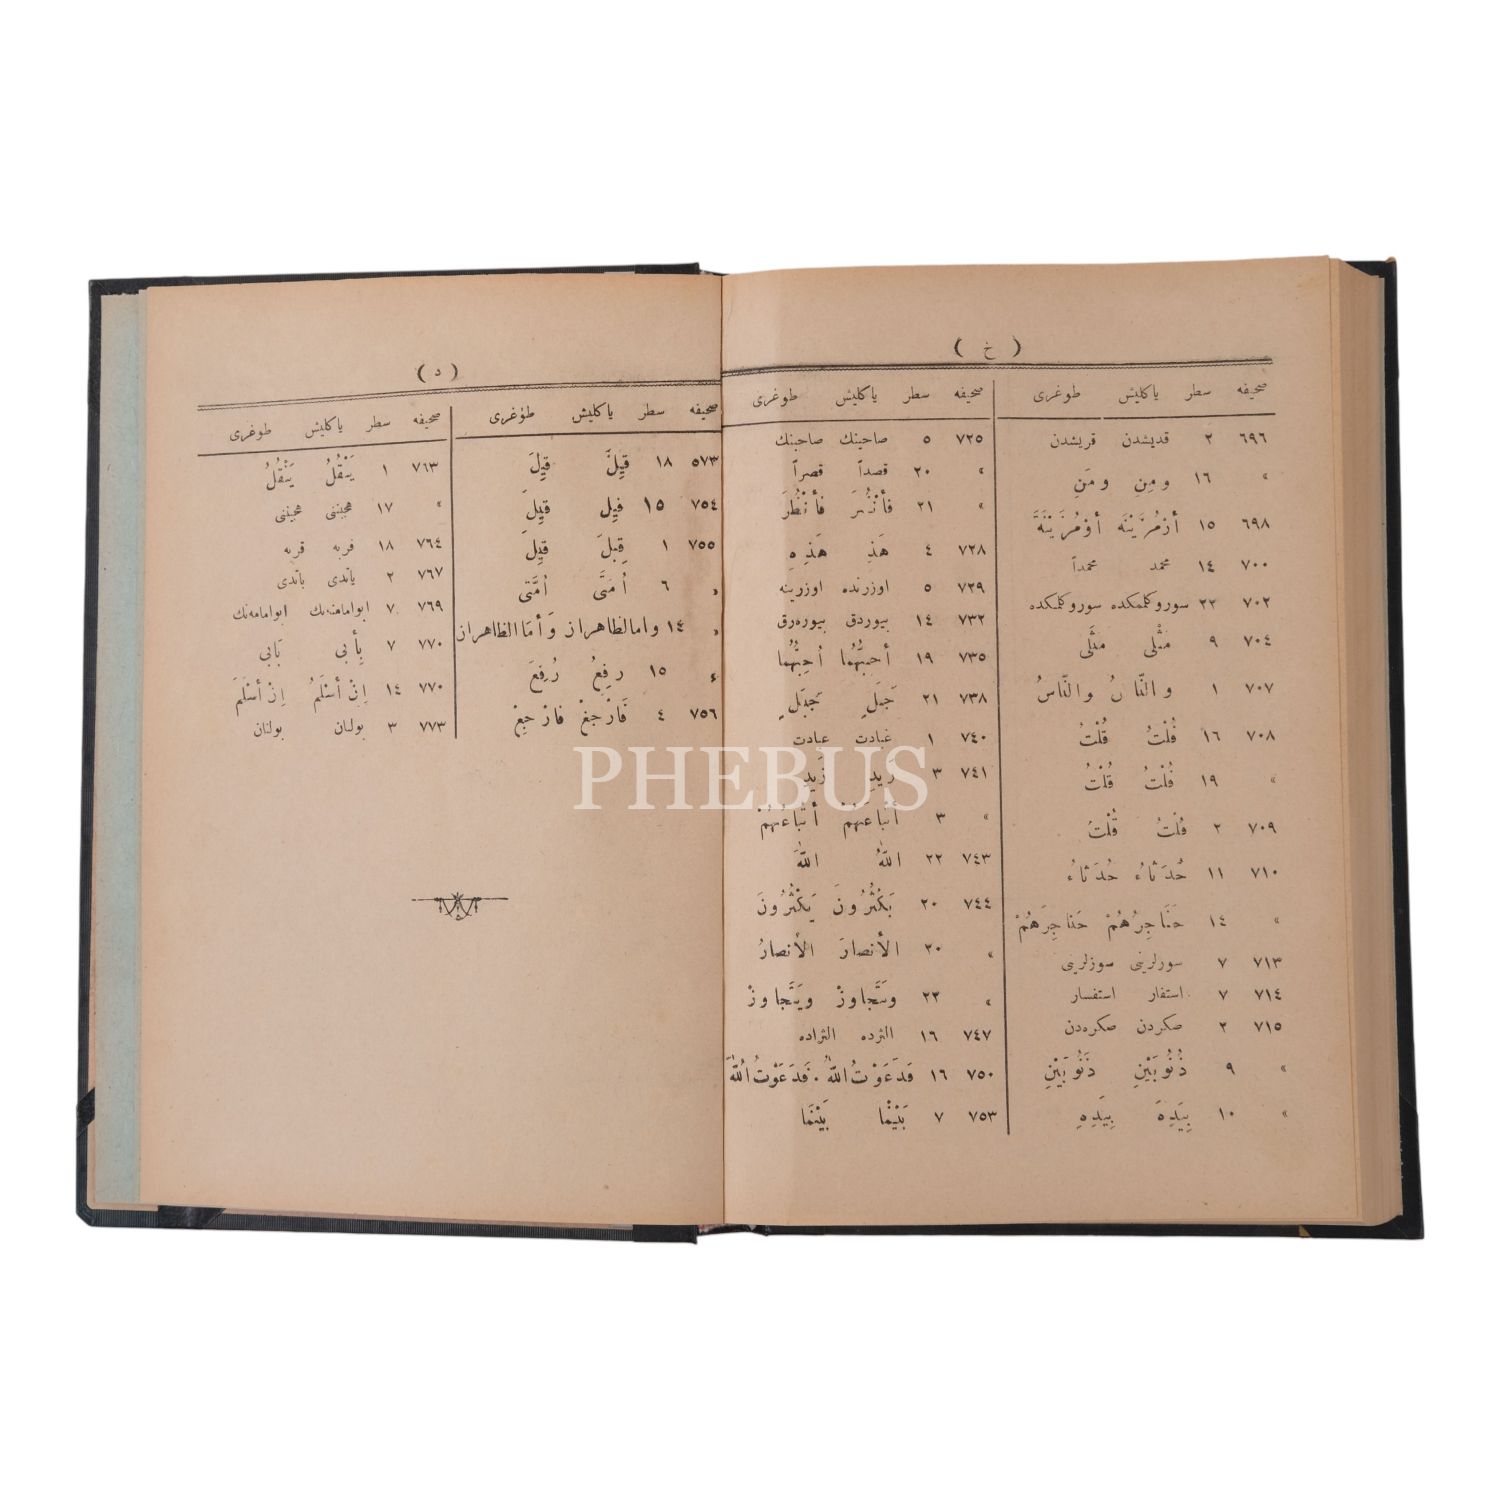 ( خ )
صحيفه سطر ياكليش طوغرى
٦٩٦ ٢ قديشدن قريشدن
» ١٦ ومِن ومَنِ
٦٩٨ ١٥
٧٠٠ ١٤ محمد محمداً
٧٠٢ ٢٢ سوروكلمكده سوروكلمكده
٧٠٤ ٩ مَثْلى مَثَلى
٧٠٧ ١ والنّانُ والنّاسُ
٧٠٨ ١٦ فُلْتُ قُلْتُ
» ١٩ فُلْتُ قُلْتُ
٧٠٩ ٢ فُلْتُ قُلْتُ
٧١٠ ١١ حُدَثاءُ حُدَثاءُ
» ١٤ حَنَاجِرُهُمْ حَناجِرَهُمْ
٧١٣ ٧ سورلرينى سوزلرينى
٧١٤ ٧ استفار استفسار
٧١٥ ٢ صكردن صكره‌دن
» ٩ ذُنُوبَيْنِ ذَنُوبَيْنِ
» ١٠ بِيَدِهَ بِيَدِهِ
صحيفه سطر ياكليش طوغرى
٧٢٥ ٥ صاحينك صاحبنك
» ٢٠ قصداً قصراً
» ٢١ فَأَنْظُرَ
٧٢٨ ٤ هَذِ هَذِهِ
٧٢٩ ٥ اوزرنده اوزرينه
٧٣٢ ١٤ بيوردق بيوره‌رق
٧٣٥ ١٩ أحبُّهُما أُحِبُّهُما
٧٣٨ ٢١ جَبَلٍ جَبَلٍ
٧٤٠ ١ غبادت عبادت
٧٤١ ٣ رَيدِ زَيدِ
» ٣ أتْباعَهُمْ أتْباعُهُمْ
٧٤٣ ٢٢ اللهُ اللهَ
٧٤٤ ٢٠ بَكْثُرُونَ يَكْثُرُونَ
» ٢٠ الأنصارَ الأنصارُ
» ٢٣ ويَتَجاوزْ
٧٤٧ ١٦ الثرده الثراده
٧٥٠ ١٦ قدَعَوْتُ اللهُ . قَدَعَوْتُ اللهَ
٧٥٣ ٧ بَيْنَما
( د )
صحيفه سطر ياكليش طوغرى
٥٧٣ ١٨ قيِلَّ قيِلَ
٧٥٤ ١٥ فيِل قيِلَ
٧٥٥ ١ قِبلَ قيِلَ
» ٦ أُمَتَّى أُمَّتى
» ١٤ وامالظاهران وَأمّاالظاهران
» ١٥ رفِعُ رُفِعَ
٧٥٦ ٤ فَارْجغْ فارْجِعْ
صحيفه سطر ياكليش طوغرى
٧٦٣ ١ يَنْقُلُ يَنْقُلُ
» ١٧
٧٦٤ ١٨ فربه قربه
٧٦٧ ٢ ياندى باندى
٧٦٩ ٧ ابوامامه‌نك
٧٧٠ ٧ بِأبى بَابى
٧٧٠ ١٤ اِنْ أسْلَمُ اِنْ أسْلَمَ
٧٧٣ ٣ بولان بولنان
PHEBUS